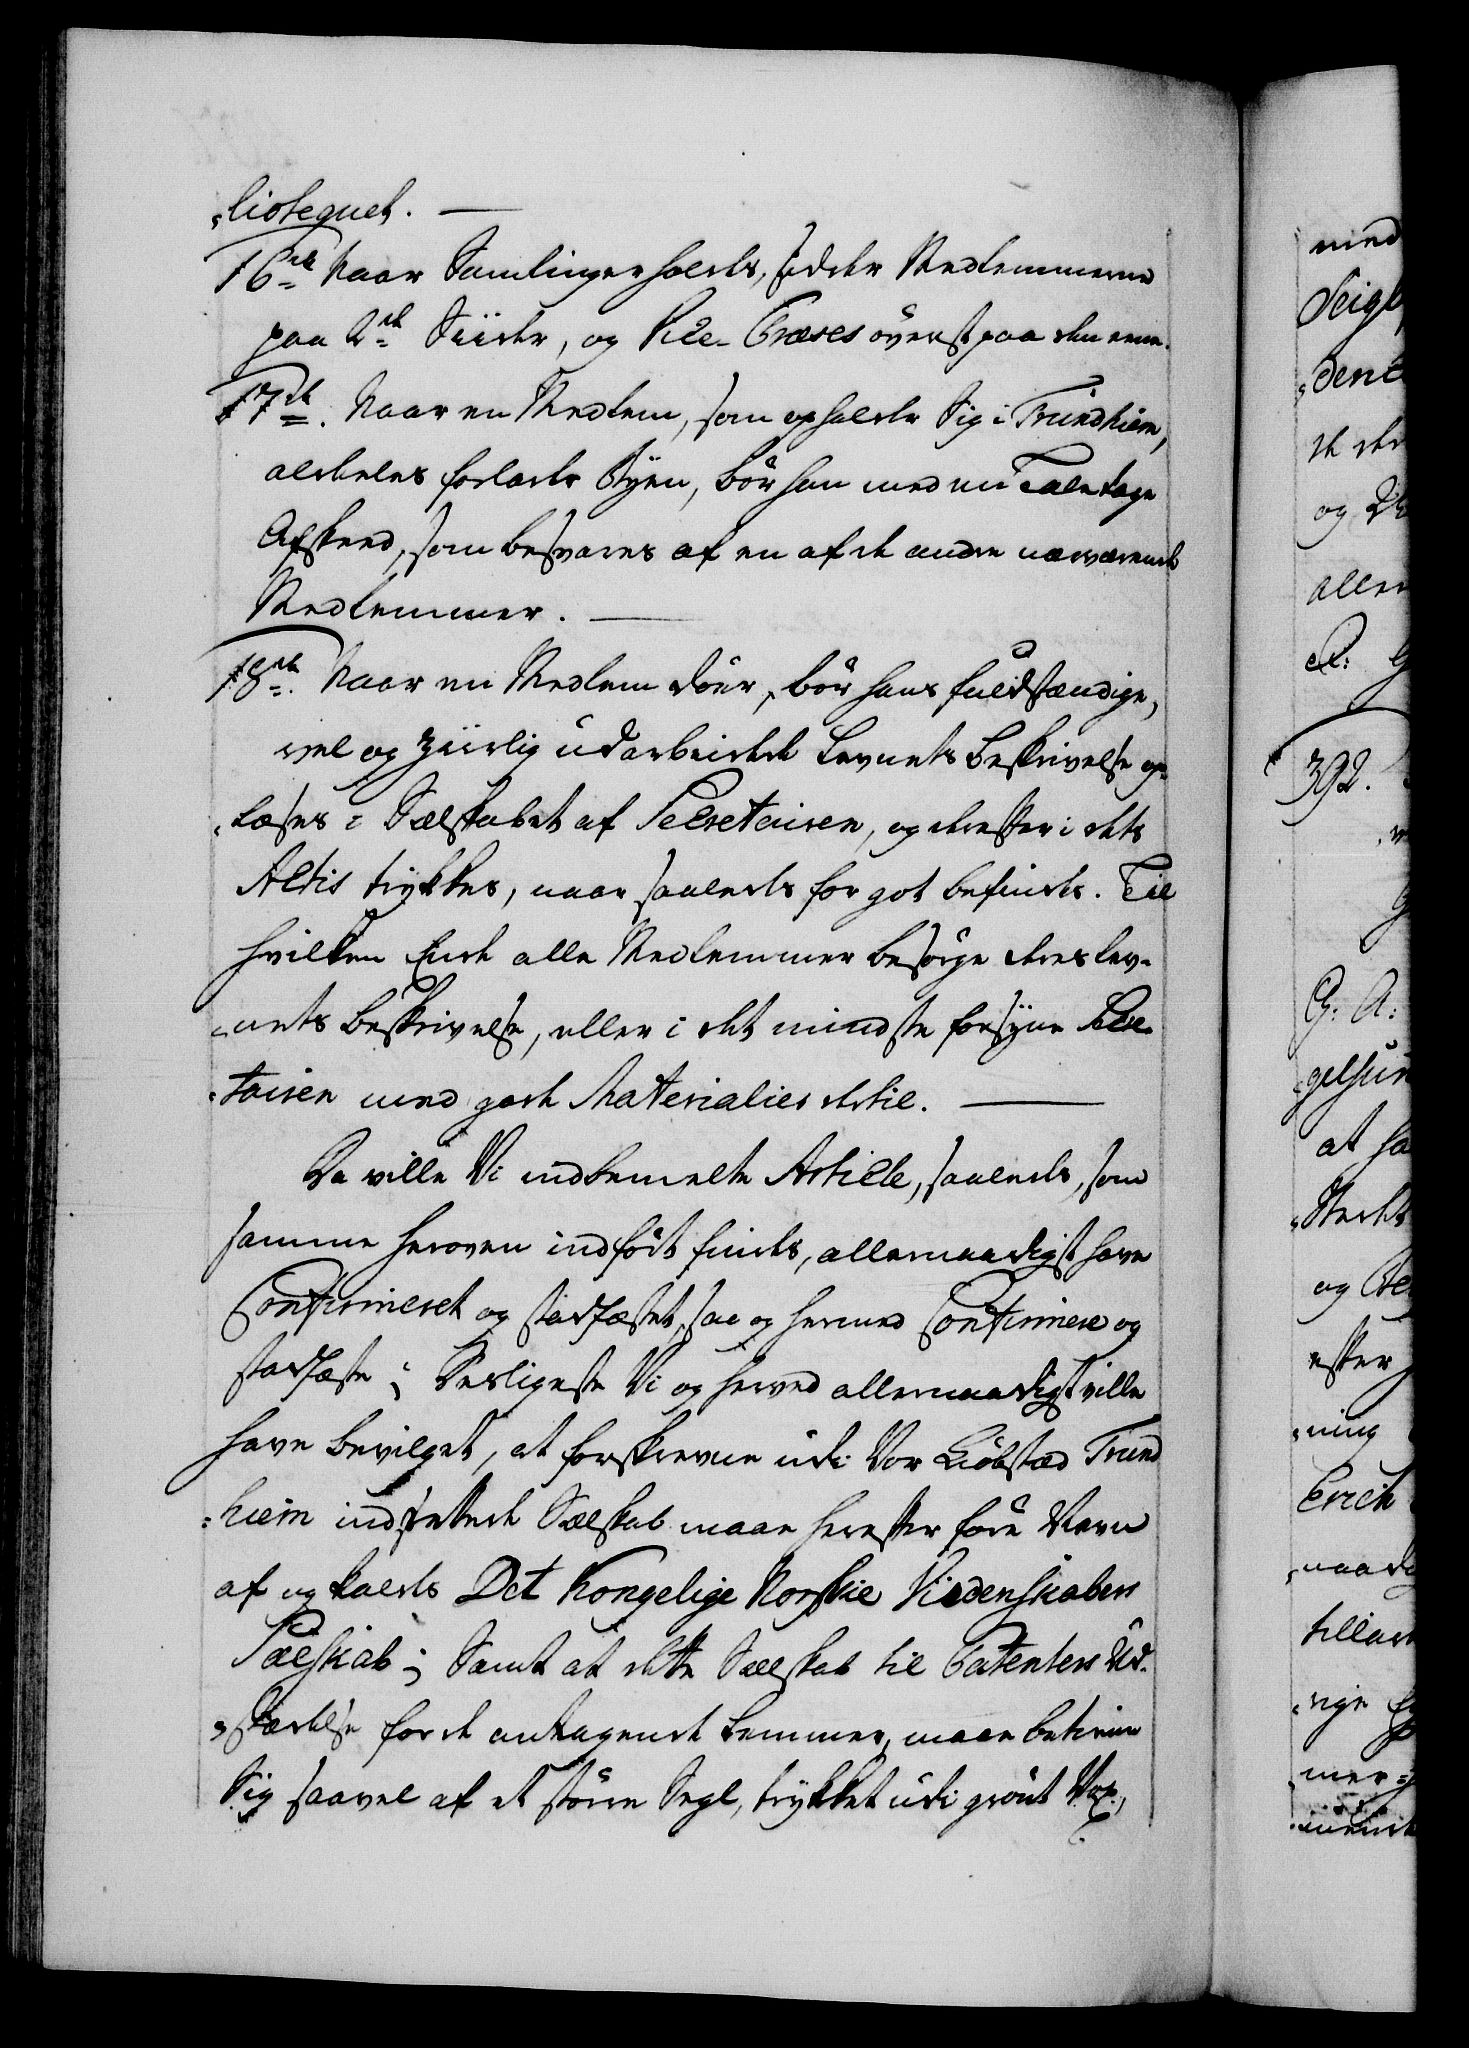 „liotequet. —
16de Naar Samlinger holdes, sidder Medlemmerne
paa 2de Siider, og Vice-Præses överst paa den eene.
17de. Naar en Medlem, som opholder Sig i Trundhiem,
aldeles forlader Byen, bör han med en Tale tage
Afskeed, som besvares af en af de andre nærværende
Medlemmer. —
18de. Naar en Medlem döer, bör hans fuldstændige,
vel og ziirlig udarbeidede Levnets Beskrivelse op-
„læses i Selskabet af Secretairen, og derefter i dets
Actis trykkes, naar saaledes for got befindes. Til
hvilken Ende alle Medlemmer besörge deres Lev-
„nets Beskrivelse, eller i det mindste forsyne Secre-
„tairen med gode Materialier dertil. —
Da ville Vi indbemelte Article, saaledes, som
samme heroven indfört findes, allernaadigst have
Confirmeret og stadfæstet, saa og hermed Confirmere og
stadfæste; Desligeste Vi og herved allernaadigst ville
have bevilget, at forskrevne udi Vor Kiöbstæd Trund
„hiem indrettede Selskab maae herefter före Navn
af og kaldes Det Kongelige Norskie Videnskabers
Sælskab; Samt at dette Sælskab til Patenters Ud-
„stædelse for de antagende Lemmer, maae betiene
Sig saavel af et större Segl, trykket udi grönt Vox,
med
„dent
og
aller
392.
G: A:
at
og
efter
„ning
Erich